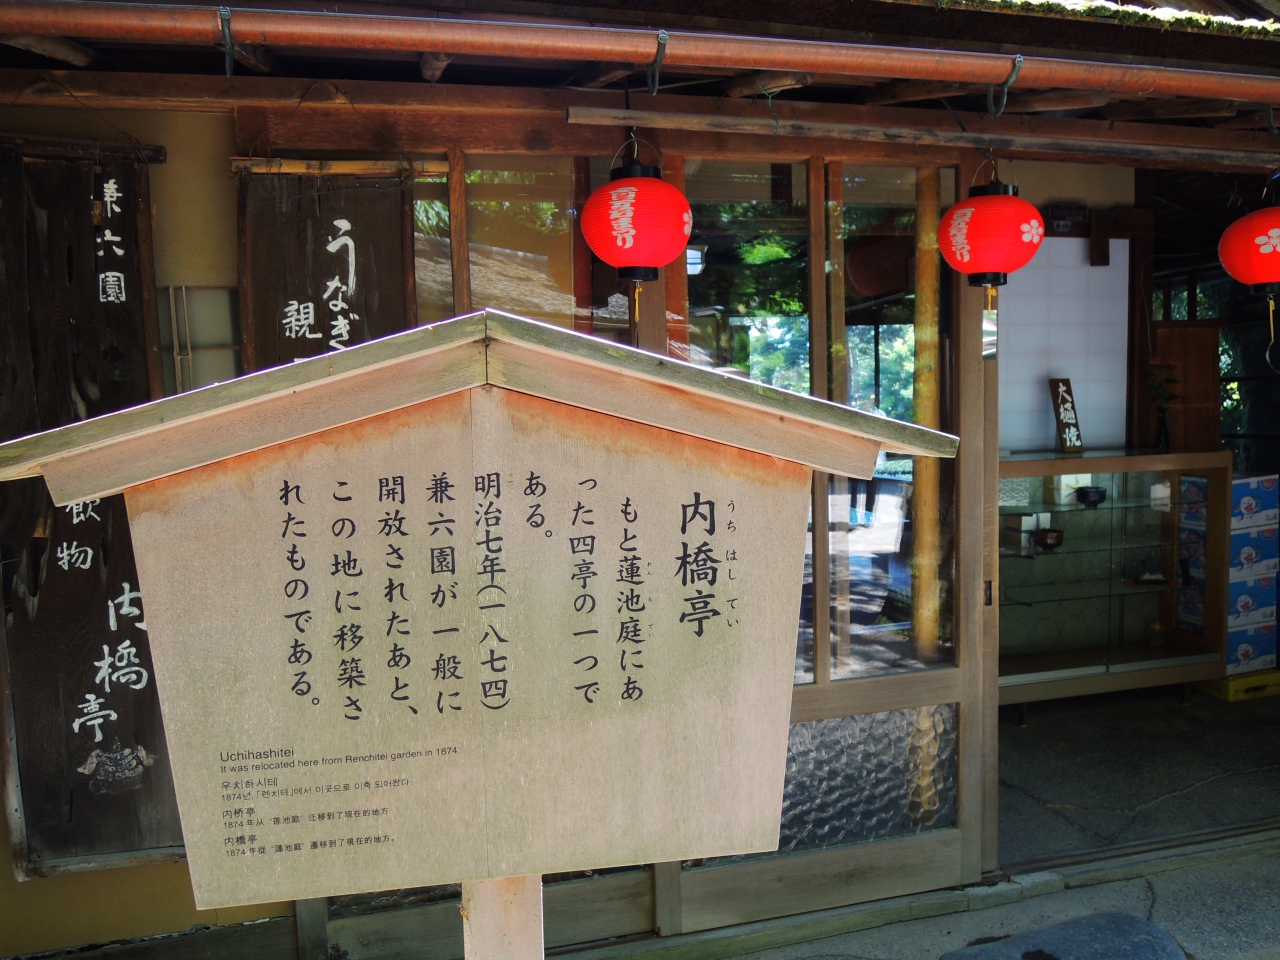 内橋亭
うちはしてい
もと蓮池庭にあ
れんちてい
った四亭の一つで
ある。
明治七年(一八七四)
兼六園が一般に
開放されたあと、
この地に移築さ
れたものである。
Uchihashitei
It was relocated here from Renchitei garden in 1874
우치하시테
1874년, 「렌치테」에서 이곳으로 이축 되어왔다
内桥亭
1874年从“莲池庭”迁移到了现在的地方
内橋亭
1874年從“蓮池庭”遷移到了現在的地方。
うなぎ
親
兼六園
飲物
内橋亭
大樋焼